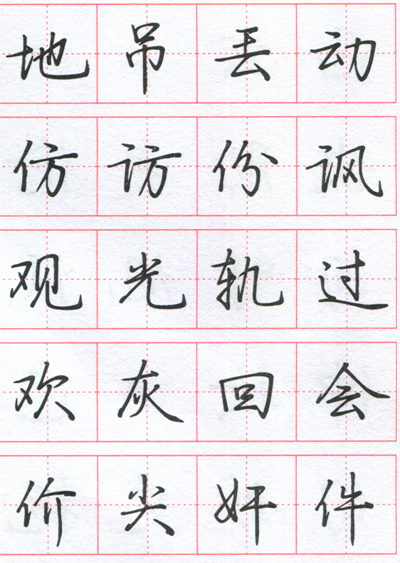 地吊丢动
仿访份讽
观光轨过
欢灰回会
价尖奸件